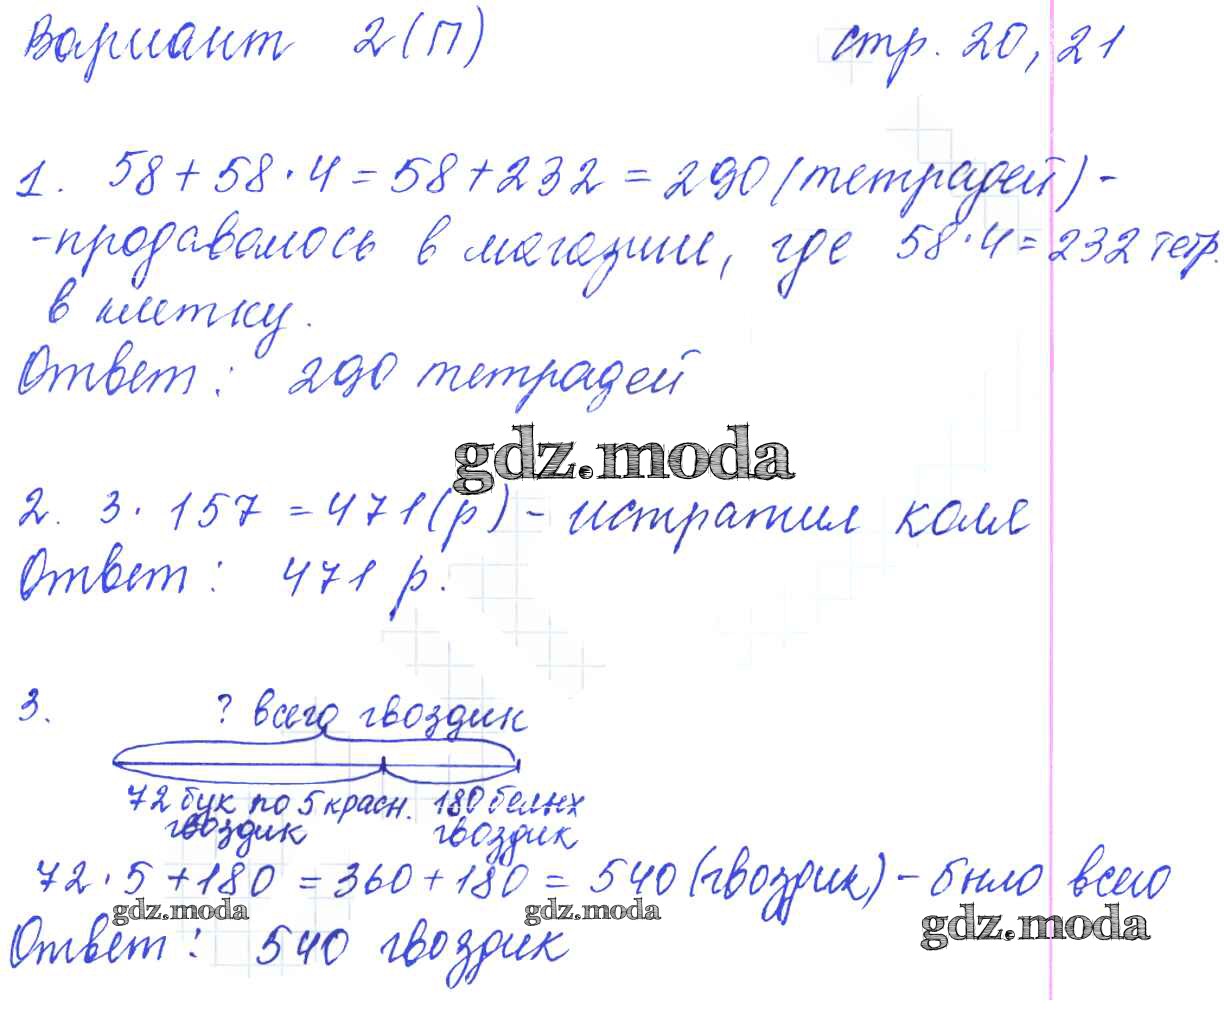 Вариант 2(П) стр. 20, 21
1. 58 + 58 · 4 = 58 + 232 = 290 (тетрадей) -
- продавалось в магазин, где 58 · 4 = 232 тетр.
в клетку.
Ответ: 290 тетрадей
gdz.moda
2. 3 · 157 = 471 (р) - истратил Коля
Ответ: 471 р.
3. ? всего гвоздик
72 бук по 5 красн. 180 белых
гвоздик гвоздик
72 · 5 + 180 = 360 + 180 = 540 (гвоздик) - было всего
gdz.moda gdz.moda gdz.moda
Ответ: 540 гвоздик